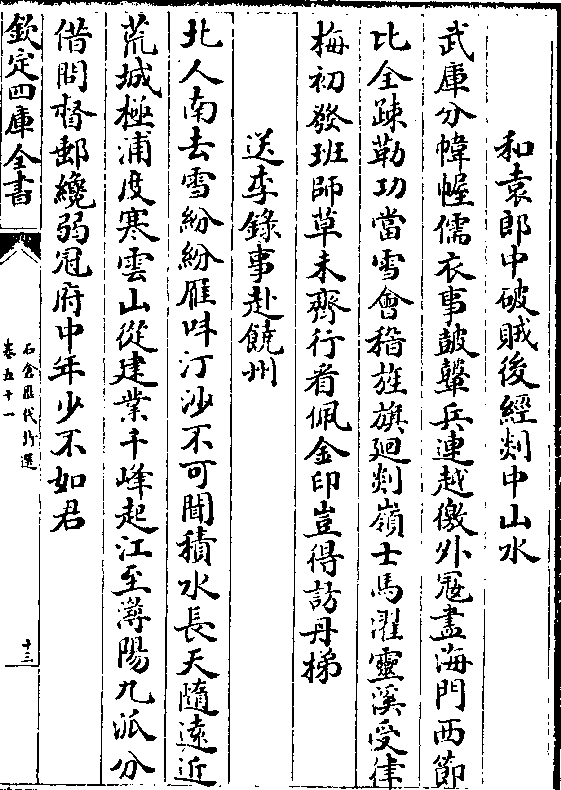 和袁郎中破賊後經剡中山水
武庫分幃幄儒衣事皷鼙兵連越徼外冦盡海門西節
比全踈勒功當雪會稽旌旗廻剡嶺士馬濯靈溪受律
梅初發班師草未齊行看佩金印豈得訪丹梯
送李錄事赴饒州
北人南去雪紛紛雁呌汀沙不可聞積水長天隨遠近
荒城極浦度寒雲山從建業千峰起江至潯陽九派分
借問督郵纔弱冠府中年少不如君
欽定四庫全書
石倉歷代詩選
卷五十一
十三